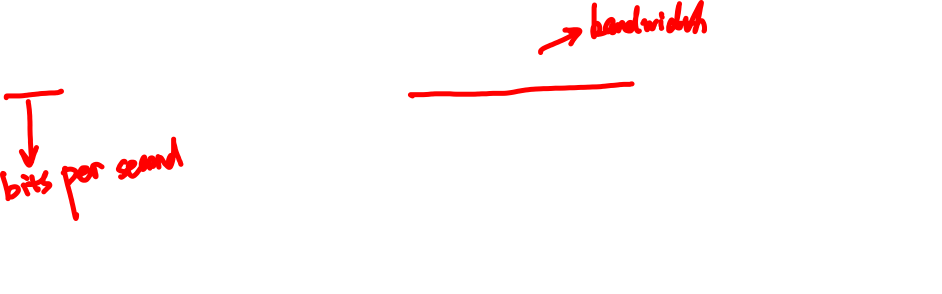 bandwidth
bits per second